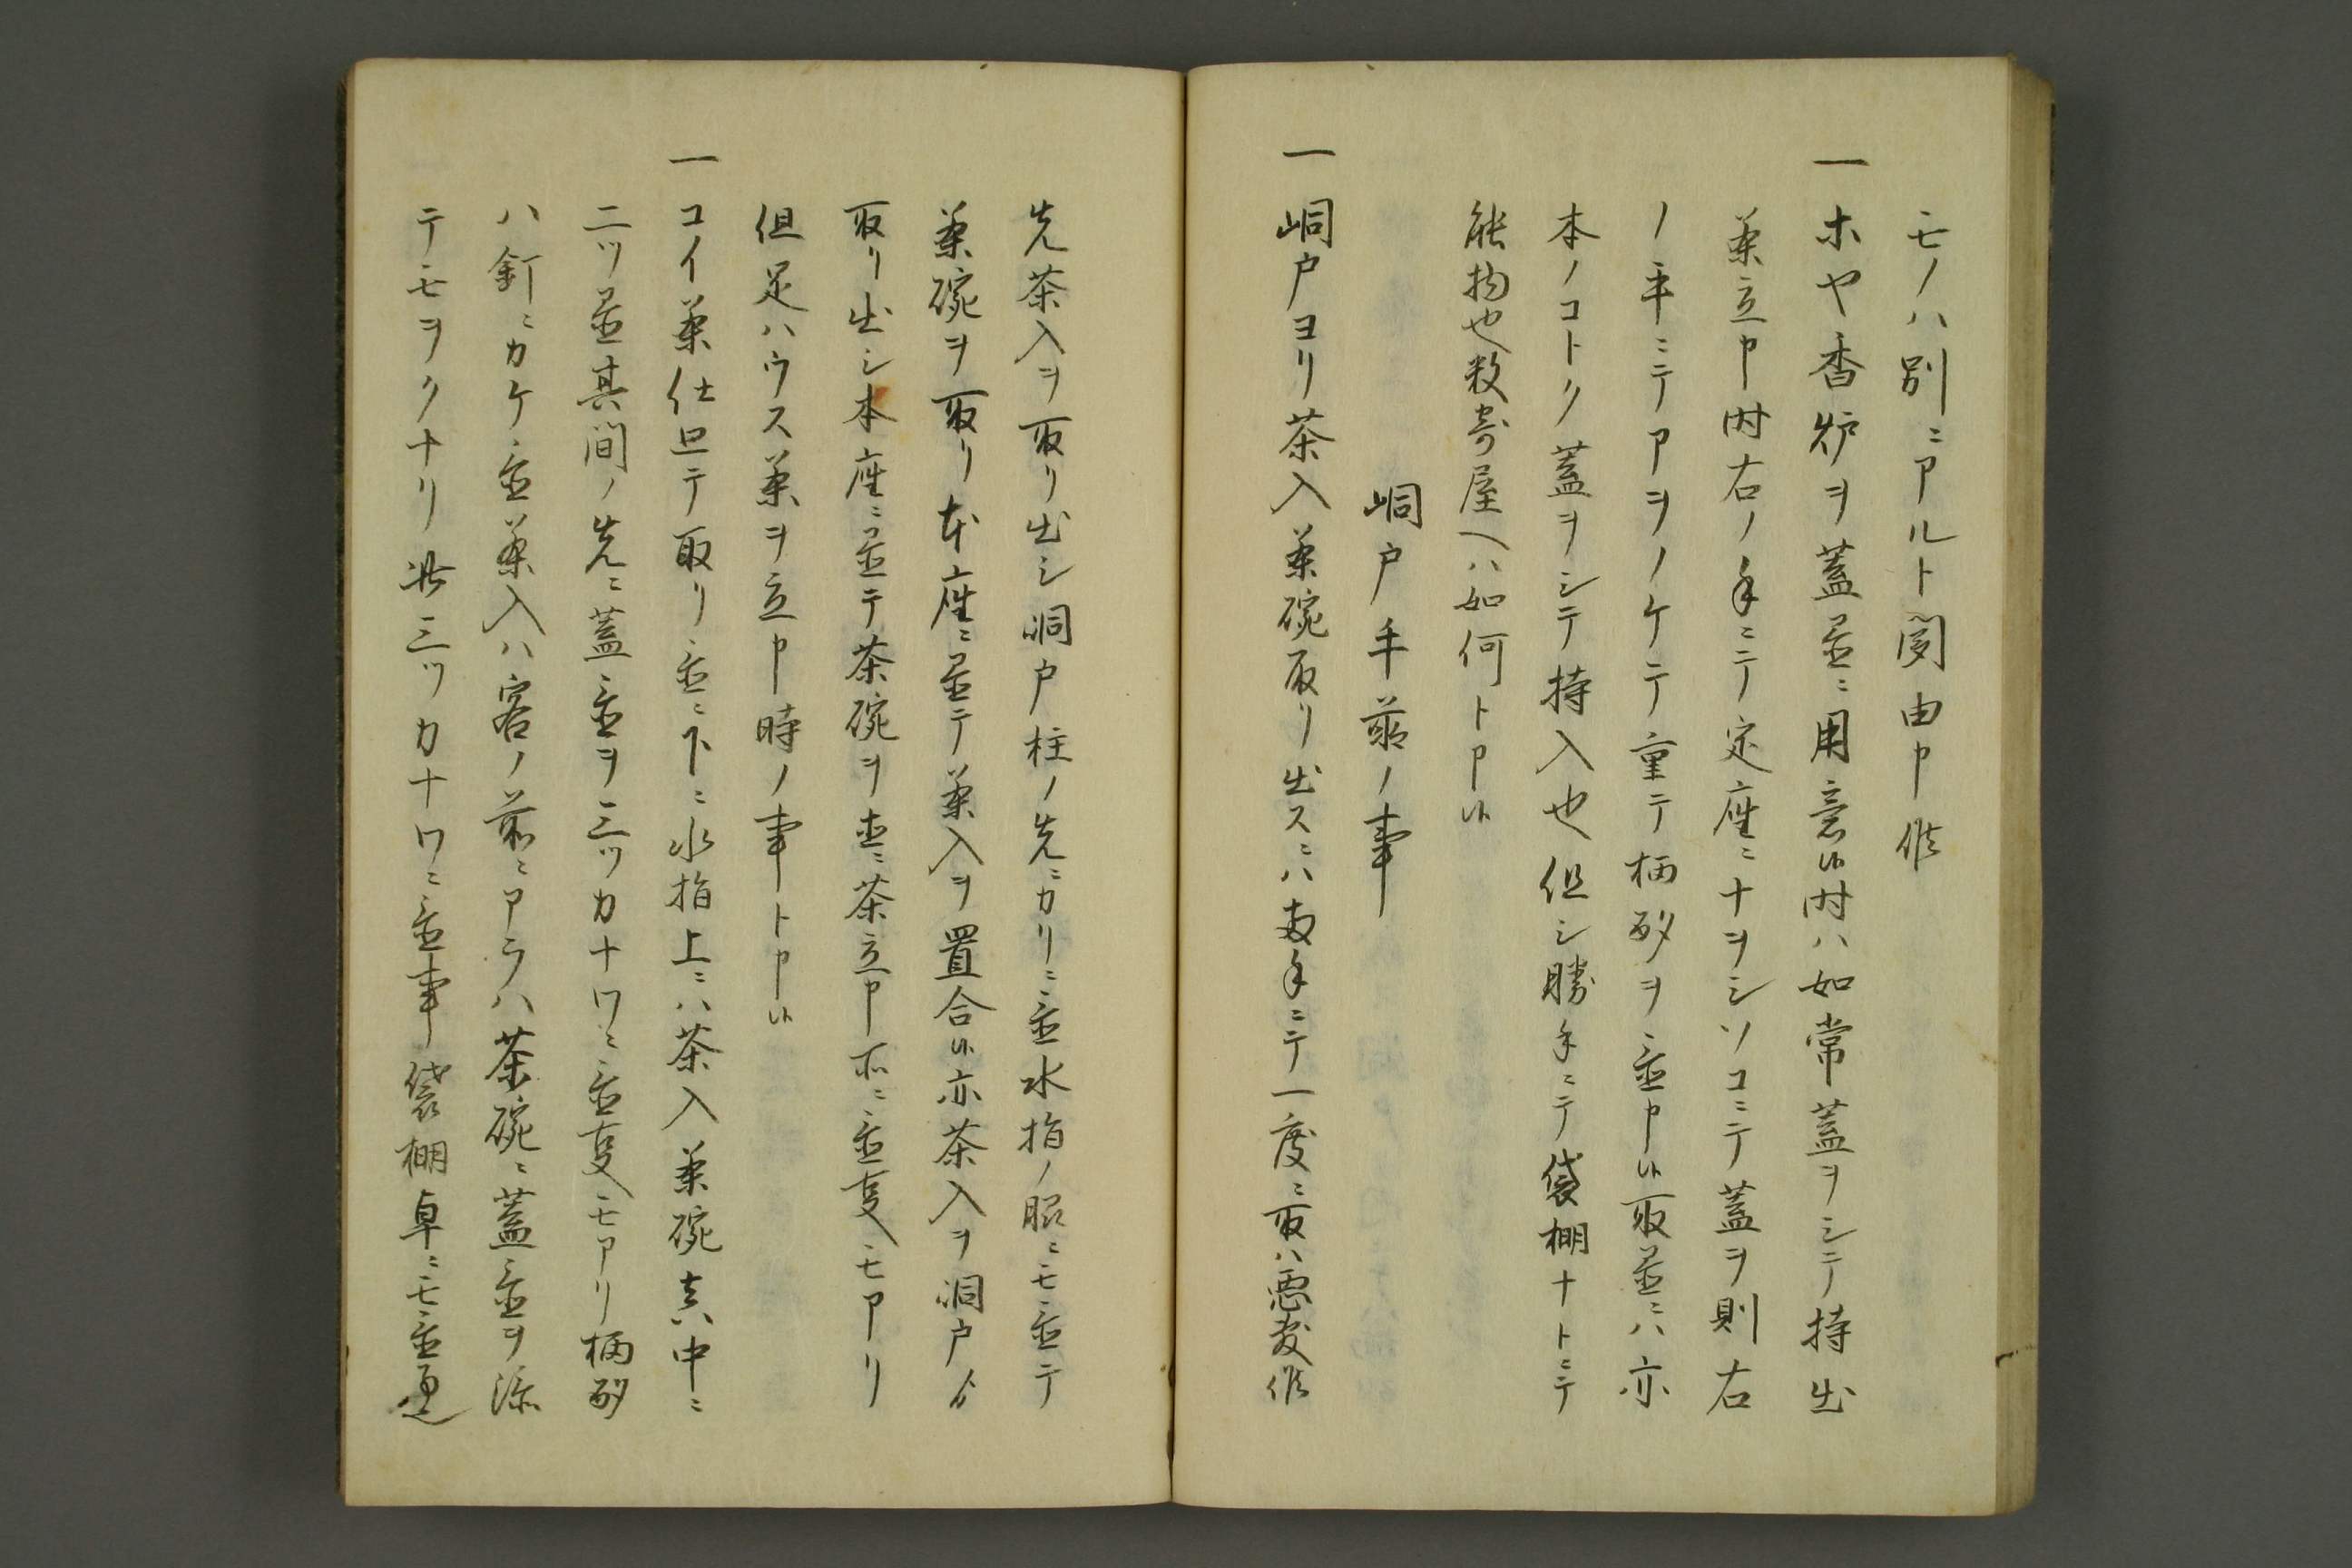 モノハ別ニアルト聞由申候
一ホヤ香炉ヲ蓋置ニ用意候時ハ如常蓋ヲシテ持出
茶立申時右ノ手ニテ定座ニナヲシソコニテ蓋ヲ則右
ノ手ニテアヲノケテ重テ柄杓ヲ置申候取置ニハ亦
本ノコトク蓋ヲシテ持入也但シ勝手ニテ袋棚ナトニテ
能物也数寄屋ヘハ如何ト申候
峒戸手前ノ事
一峒戸ヨリ茶入茶碗取リ出スニハ両手ニテ一度ニ取ハ悪敷候
先茶入ヲ取リ出シ洞戸柱ノ先ニカリニ置水指ノ脇ニモ置テ
茶碗ヲ取リ本座ニ置テ茶入ヲ置合候亦茶入ヲ洞戸ゟ
取リ出シ本座ニ置テ茶碗ヲ直ニ茶立申所ニ置事モアリ
但是ハウス茶ヲ立申時ノ事ト申候
一コイ茶仕廻テ取リ置ニ下ニ水指上ニハ茶入茶碗真中ニ
二ツ置其間ノ先ニ蓋置ヲ三ツカナワニ置事モアリ柄杓
ハ釘ニカケ置茶入ハ客ノ前ニアラハ茶碗ニ蓋置ヲ添
テモヲクナリ此三ツカナワニ置事袋棚卓ニモ置